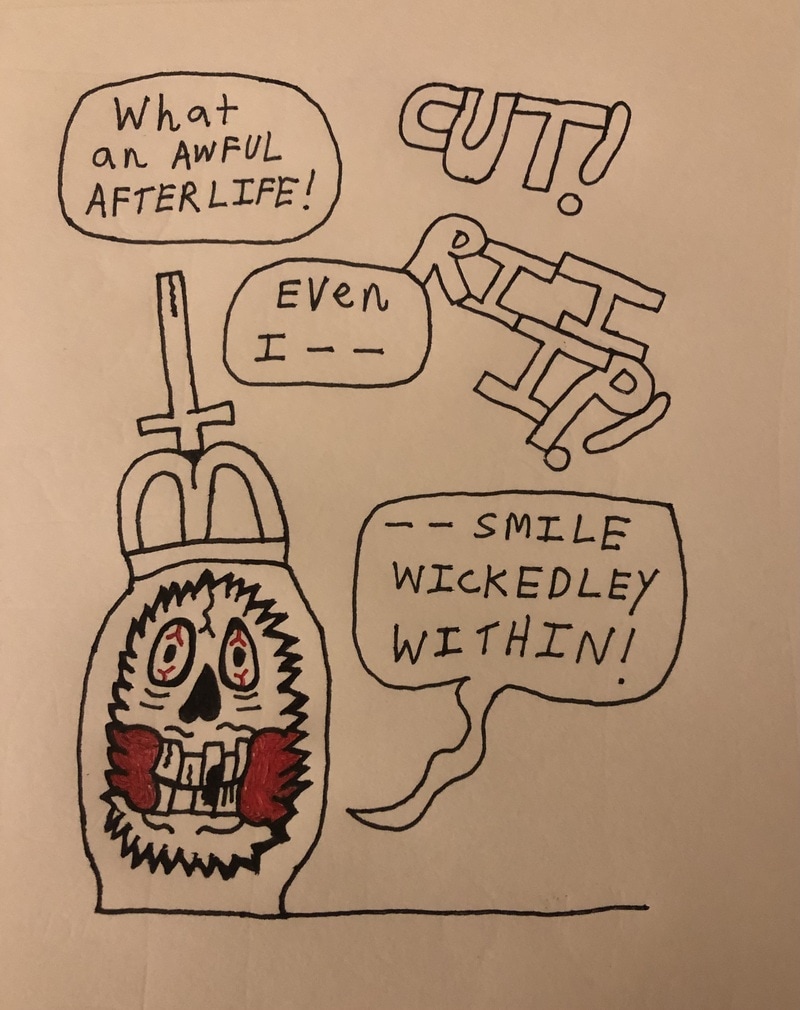 What
an AWFUL
AFTERLIFE!
CUT!
EVen
I --
RIIIP!
-- SMILE
WICKEDLEY
WITHIN!